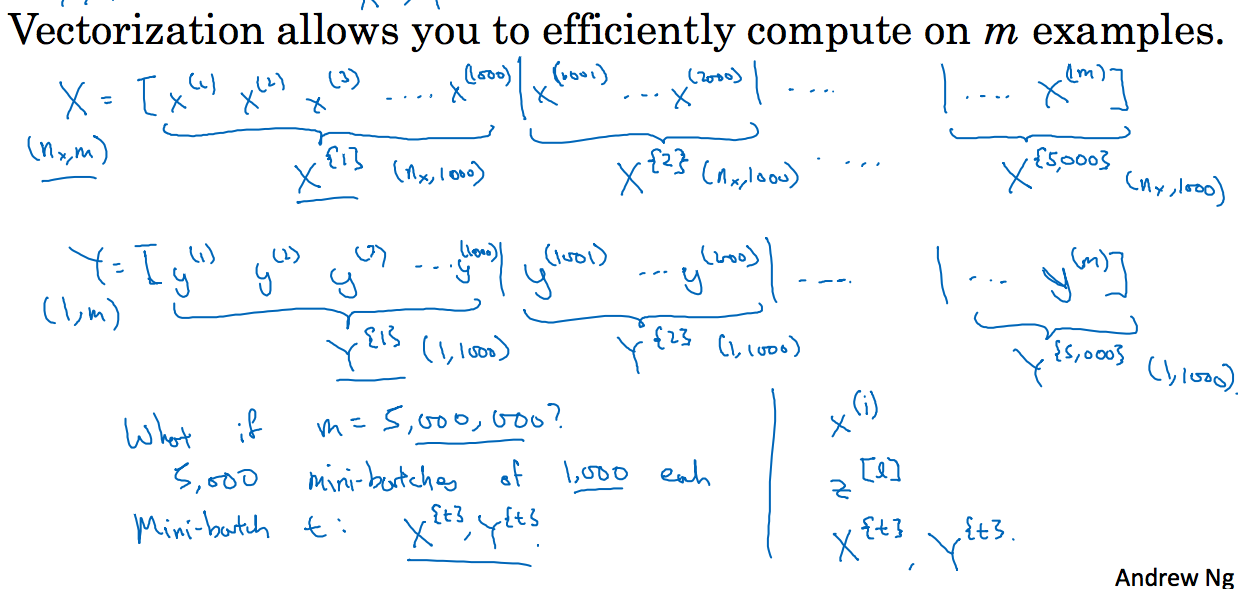 Vectorization allows you to efficiently compute on m examples.
X = [x^(1) x^(2) x^(3) .... x^(1000) | x^(1001) ... x^(2000) | .... | .... x^(m)]
(n_x, m)
X^{1} (n_x, 1000) X^{2} (n_x, 1000) .... X^{5,000} (n_x, 1000)
Y = [y^(1) y^(2) y^(3) ... y^(1000) | y^(1001) ... y^(2000) | .... | ... y^(m)]
(1, m)
Y^{1} (1, 1000) Y^{2} (1, 1000) Y^{5,000} (1, 1000).
What if m = 5,000,000?
5,000 mini-batches of 1,000 each
Mini-batch t: X^{t}, Y^{t}.
x^(i)
z^[l]
X^{t}, Y^{t}.
Andrew Ng